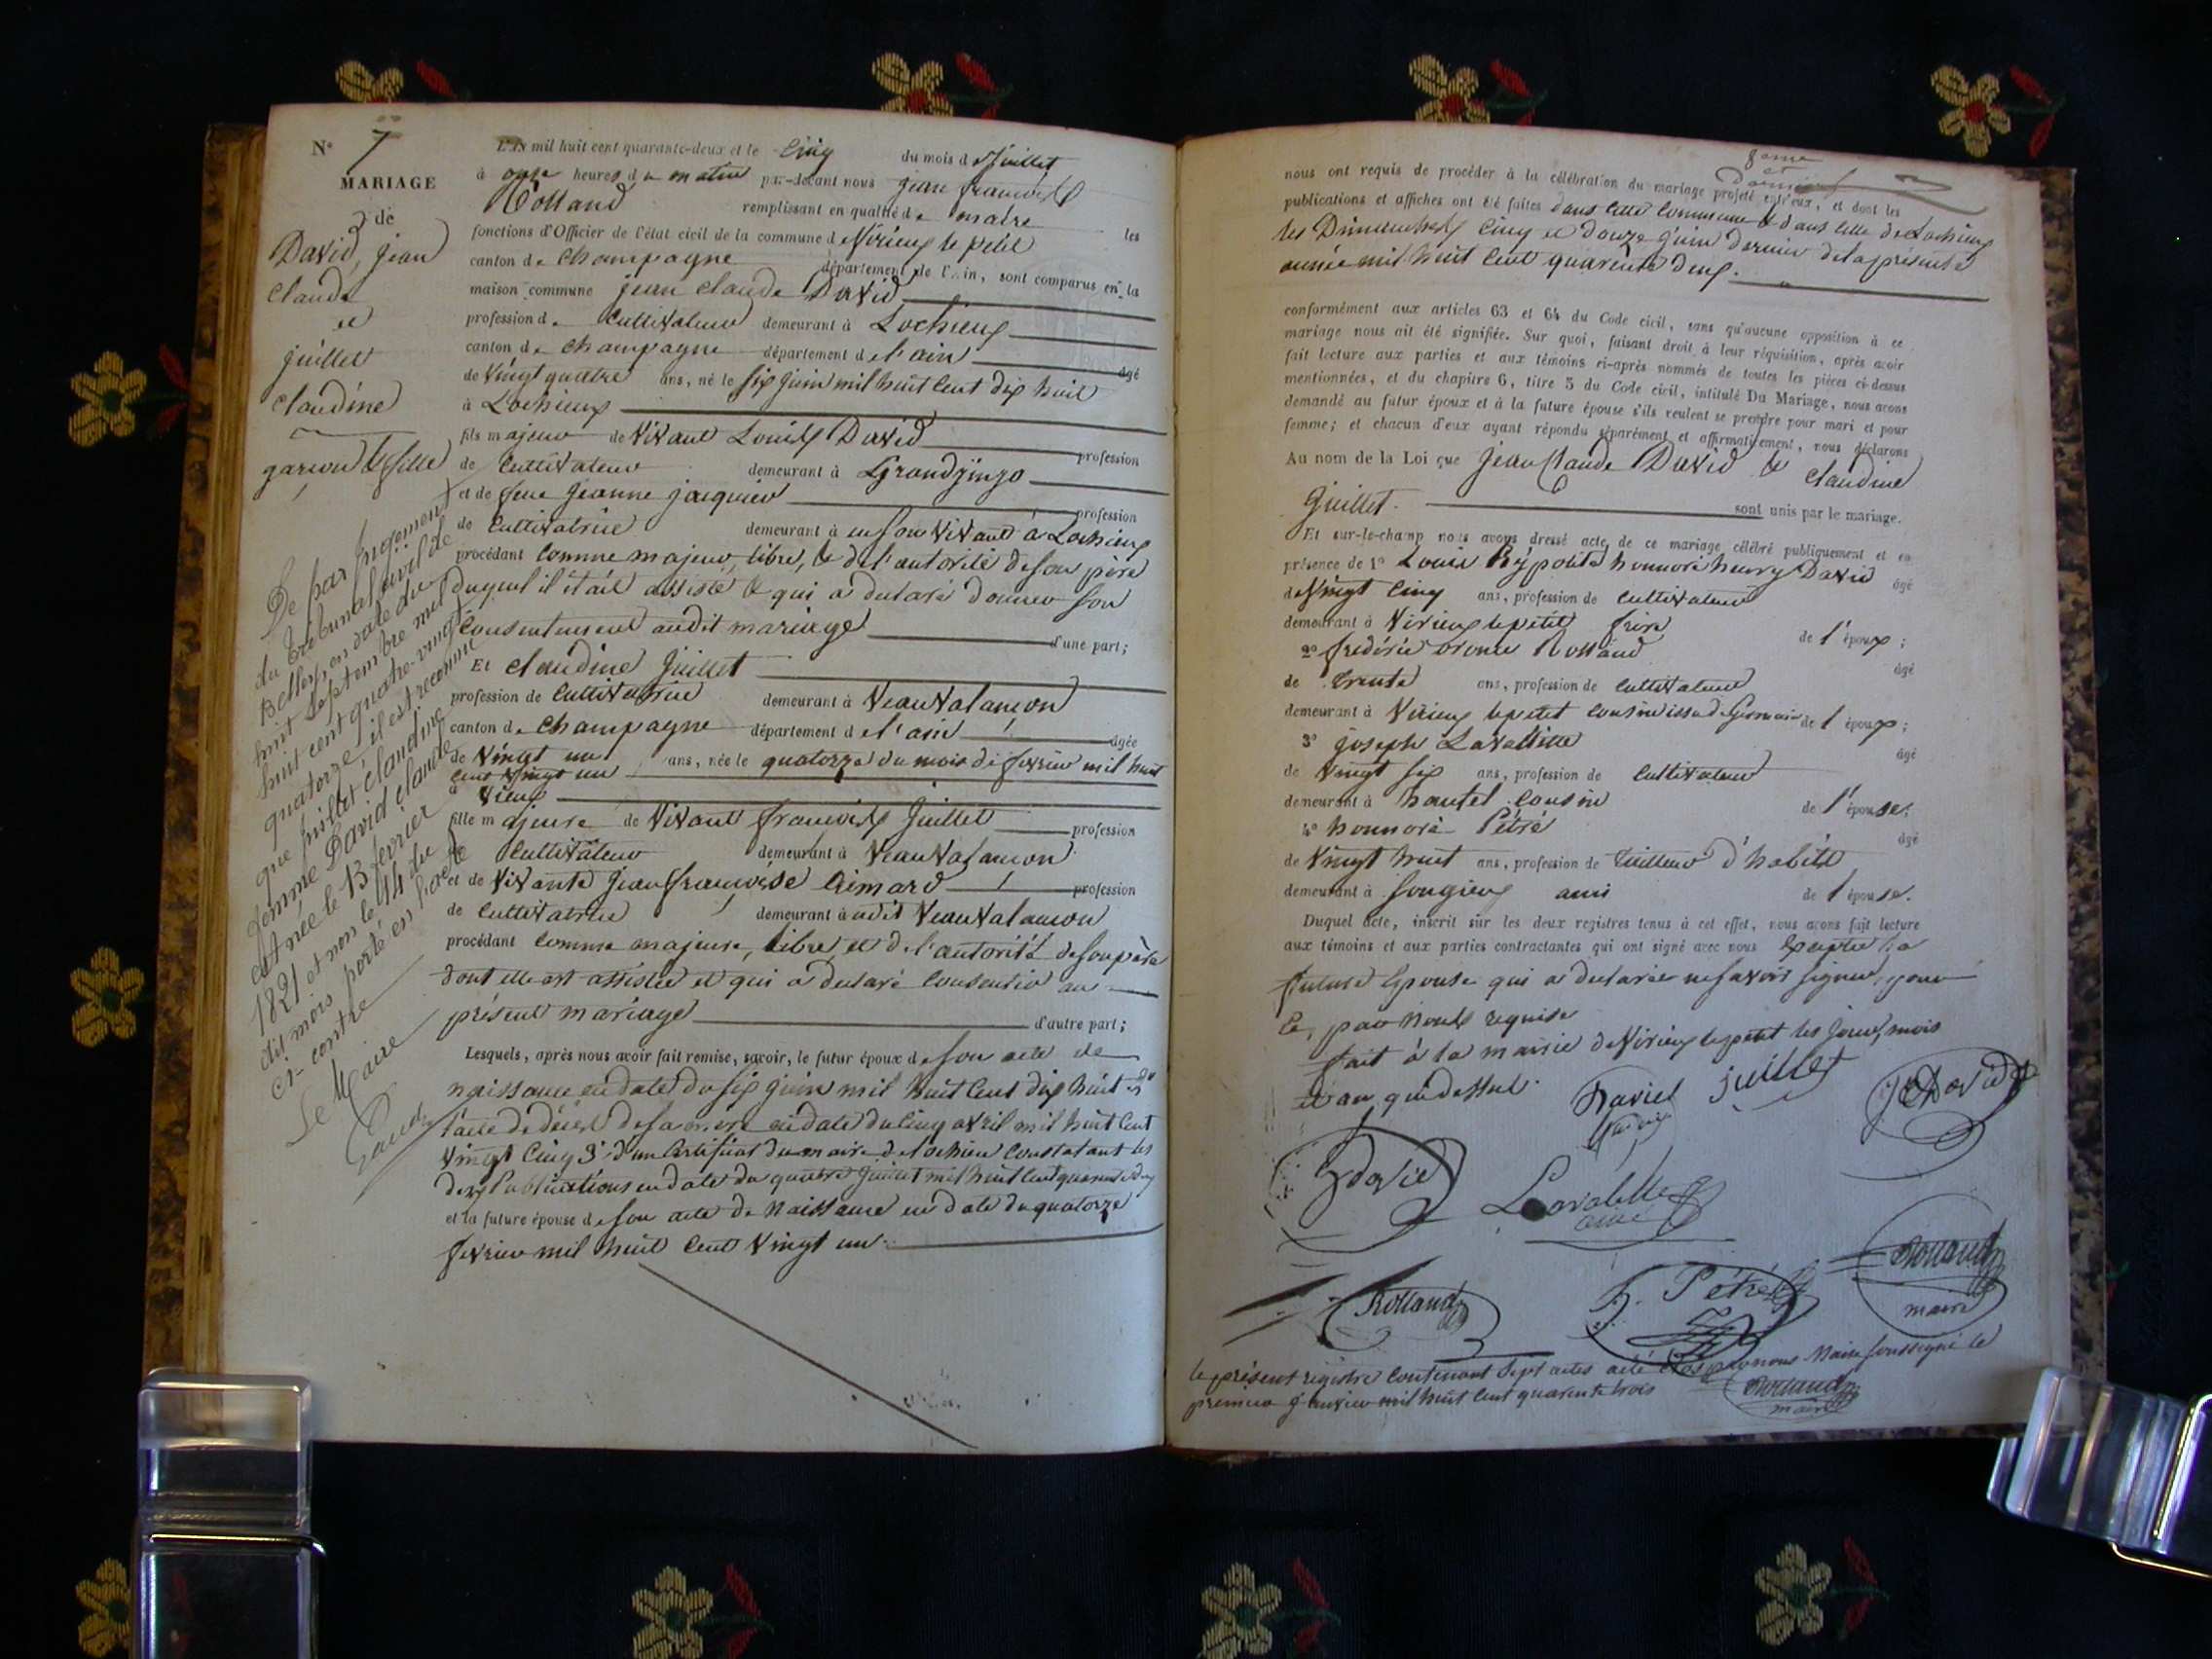 N° 7
MARIAGE
de
David, jean
Claude
et
juillet
claudine
garçon et fille
De par jugement
du tribunal civil de
Belley, en date du
huit septembre mil
huit cent quatre-vingt
quatorze, il est reconnu
que juillet Claudine
femme David Claude
est née le 13 fevrier
1821 et non le 14 du
dit mois porté en l'acte
ci-contre
Le Maire
L'AN mil huit cent quarante-deux et le cinq du mois de juillet
à onze heures du matin par-devant nous jean françois
Rolland remplissant en qualité de maire les
fonctions d'Officier de l'état civil de la commune de Virieux le petit
canton de champagne département de l'Ain, sont comparus en la
maison commune jean claude David
profession de Cultivateur demeurant à Lochieux
canton de champagne département de l'ain âgé
de vingt quatre ans, né le six juin mil huit cent dix huit
à Lochieux
fils majeur de vivant Louis David profession
de cultivateur demeurant à
et de feue jeanne jacquier profession
de cultivatrice demeurant à en son vivant à Lochieux
procédant comme majeur, libre, et de l'autorité de son père
duquel il était assisté et qui a declaré donner son
consentement audit mariage d'une part;
Et claudine juillet
profession de cultivatrice demeurant à
canton de champagne département de l'ain âgée
de vingt un ans, née le quatorze du mois de fevrier mil huit
cent vingt un
à vieux
fille majeure de vivant françois juillet profession
cultivateur demeurant à
et de vivante jeanfrançoise profession
de cultivatrice demeurant à
procédant comme majeure, libre, et de l'autorité de son père
dont elle est assistée et qui a declaré consentir au
présent mariage d'autre part;
Lesquels, après nous avoir fait remise, savoir, le futur époux de son acte de
naissance en date du six juin mil huit cent dix huit 2°
l'acte de décès de sa mère en date du cinq avril mil huit cent
vingt cinq 3° d'un certificat du maire de Lochieu constatant les
deux Publications en date du quatre juillet mil huit cent quarante deux
et la future épouse de son acte de naissance en date du quatorze
fevrier mil huit cent vingt un.
nous ont requis de procéder à la célébration du mariage projeté entr'eux, et dont les
publications et affiches ont été faites dans cette commune et dans celle de Lochieux
les Dimanches cinq et douze juin dernier de la présente
année mil huit cent quarante deux.
conformément aux articles 63 et 64 du Code civil, sans qu'aucune opposition à ce
mariage nous ait été signifiée. Sur quoi, faisant droit à leur réquisition, après avoir
fait lecture aux parties et aux témoins ci-après nommés de toutes les pièces ci-dessus
mentionnées, et du chapitre 6, titre 5 du Code civil, intitulé Du Mariage, nous avons
demandé au futur époux et à la future épouse s'ils veulent se prendre pour mari et pour
femme; et chacun d'eux ayant répondu séparément et affirmativement, nous déclarons
Au nom de la Loi que jean Claude David et claudine
juillet. sont unis par le mariage.
Et sur-le-champ nous avons dressé acte de ce mariage célébré publiquement et en
présence de 1° Louis hypolite honnoré henry David âgé
de vingt cinq ans, profession de cultivateur
demeurant à Virieux le petit frère de l'époux;
2° frédéric Rolland âgé
de trente ans, profession de cultivateur
demeurant à Virieux le petit cousin issu de Germain de l'époux;
3° joseph Lavallitte âgé
de vingt six ans, profession de cultivateur
demeurant à hautel cousin de l'épouse;
4° honnoré Pétré âgé
de vingt huit ans, profession de tailleur d'habits
demeurant à Songieux ami de l'épouse.
Duquel acte, inscrit sur les deux registres tenus à cet effet, nous avons fait lecture
aux témoins et aux parties contractantes qui ont signé avec nous excepté la
future Epouse qui a declarée ne savoir signer, pour
ce, par nous requise
fait à la mairie de Virieux le petit les jour, mois
et an que dessus.
David juillet JC David
David
Lavalitte
Rolland
h. Pétré
Rolland
maire
le présent registre contenant sept actes a été clos par nous Maire soussigné le
premier janvier mil huit cent quarante trois
Rolland
maire